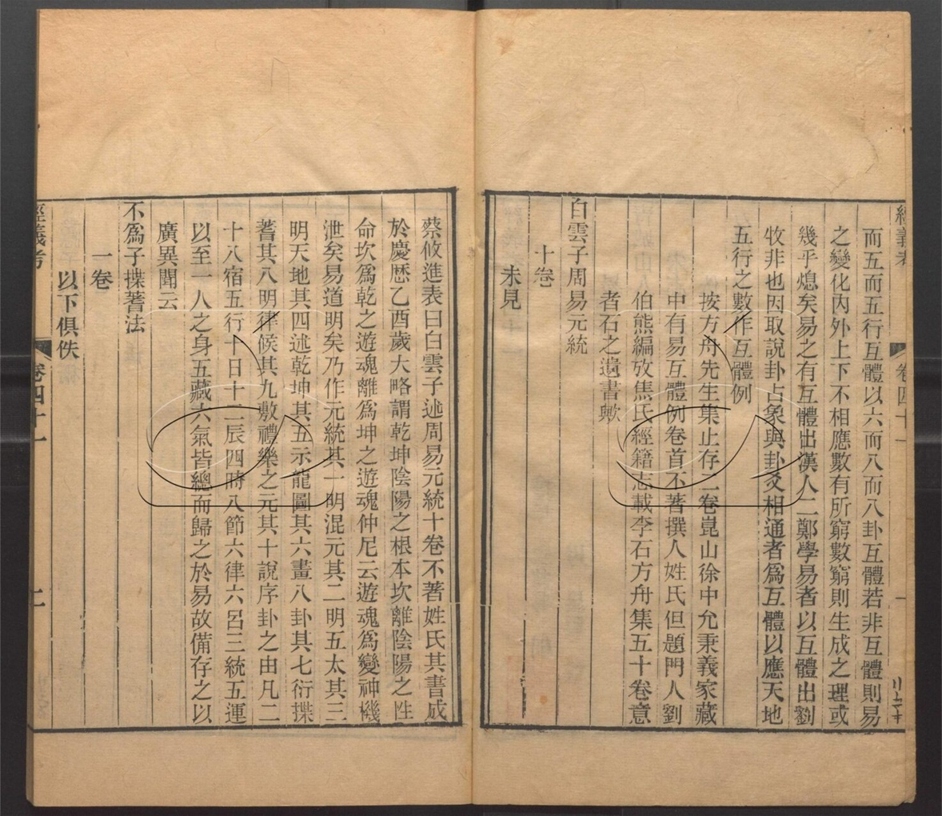 經義考
卷四十一
而五而五行互體以六而八而八卦互體若非互體則易
之變化內外上下不相應數有所窮數窮則生成之理或
幾乎熄矣易之有互體出漢人二鄭學易者以互體出劉
牧非也因取說卦占象與卦爻相通者爲互體以應天地
五行之數作互體例
按方舟先生集止存二卷崑山徐中允秉義家藏
中有易互體例卷首不著撰人姓氏但題門人劉
伯熊編攷焦氏經籍志載李石方舟集五十卷意
者石之遺書歟
白雲子周易元統
十卷
未見
蔡攸進表曰白雲子述周易元統十卷不著姓氏其書成
於慶歴乙酉歲大略謂乾坤陰陽之根本坎離陰陽之性
命坎爲乾之遊魂離爲坤之遊魂仲尼云遊魂爲變神機
泄矣易道明矣乃作元統其一明混元其二明五太其三
明天地其四述乾坤其五示龍圖其六畫八卦其七衍揲
蓍其八明律候其九敷禮樂之元其十說序卦之由凡二
十八宿五行十日十二辰四時八節六律六呂三統五運
以至一人之身五藏六氣皆總而歸之於易故備存之以
廣異聞云
不爲子揲蓍法
一卷
以下俱佚
經義考
卷四十一